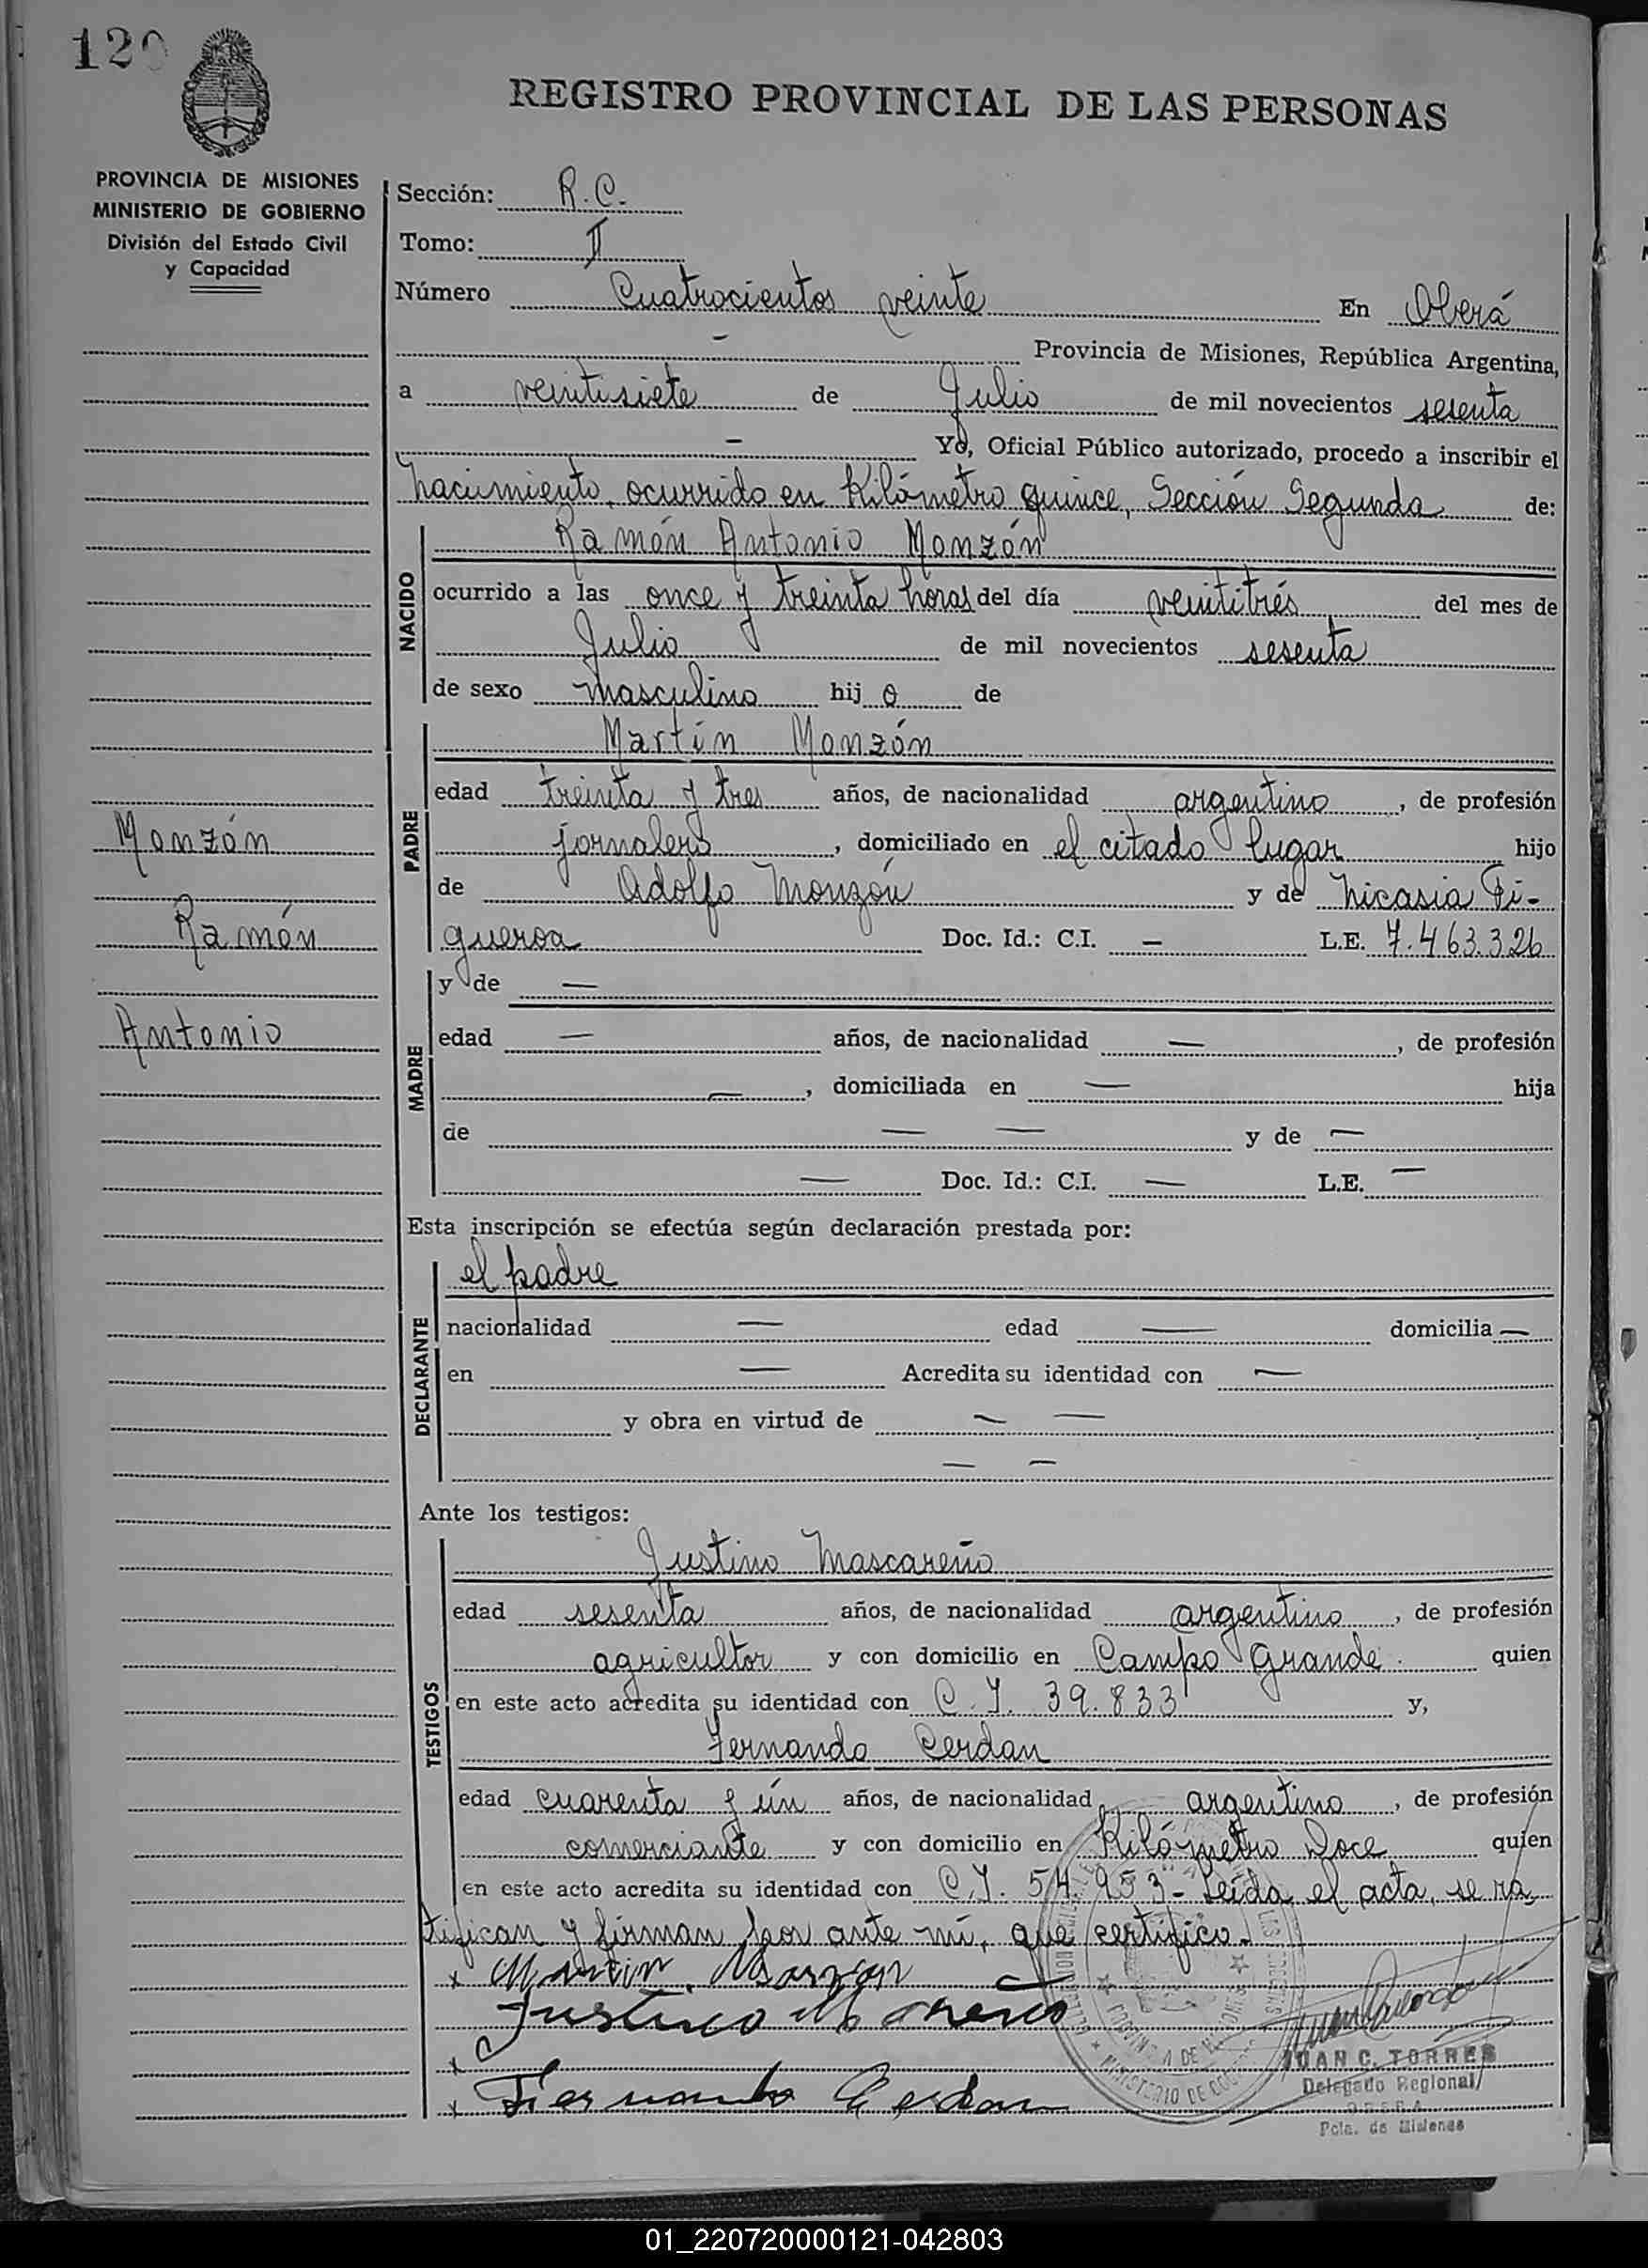 120
REGISTRO PROVINCIAL DE LAS PERSONAS
PROVINCIA DE MISIONES
MINISTERIO DE GOBIERNO
División del Estado Civil
y Capacidad
Sección: R.C.
Tomo: II
Número Cuatrocientos veinte En Oberá
— Provincia de Misiones, República Argentina,
a veintisiete de Julio de mil novecientos sesenta
— Yo, Oficial Público autorizado, procedo a inscribir el
nacimiento, ocurrido en Kilómetro quince, Sección Segunda de:
NACIDO
Ramón Antonio Monzón
ocurrido a las once y treinta horas del día veintitrés del mes de
Julio de mil novecientos sesenta
de sexo masculino hij o de
PADRE
Martín Monzón
edad treinta y tres años, de nacionalidad argentino, de profesión
jornalero, domiciliado en el citado lugar hijo
de Adolfo Monzón y de Nicasia Fi-
gueroa Doc. Id.: C.I. — L.E. 7.463.326
Monzón
Ramón
Antonio
MADRE
y de —
edad — años, de nacionalidad —, de profesión
—, domiciliada en — hija
de — — y de —
— Doc. Id.: C.I. — L.E. —
Esta inscripción se efectúa según declaración prestada por:
DECLARANTE
el padre
nacionalidad — edad — domicilia —
en — Acredita su identidad con —
y obra en virtud de — —
— —
Ante los testigos:
TESTIGOS
Justino Mascareño
edad sesenta años, de nacionalidad argentino, de profesión
agricultor y con domicilio en Campo Grande. quien
en este acto acredita su identidad con C.I. 39.833 y,
Fernando Cerdan
edad cuarenta y ún años, de nacionalidad argentino, de profesión
comerciante y con domicilio en Kilómetro Doce quien
en este acto acredita su identidad con C.I. 54.953- Leída el acta, se ra-
tifican y firman por ante mí, que certifico.
x Martin Monzon
Justino
x
x Fernando Cerdan
JUAN C. TORRES
Delegado Regional
OBERA
Pcia. de Misiones
01_220720000121-042803